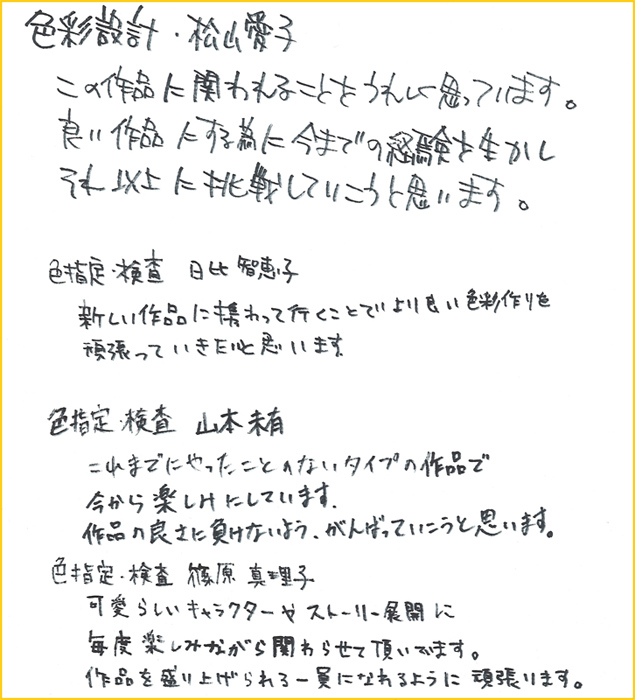 色彩設計・松山愛子
この作品に関われることをうれしく思っています。
良い作品にする為に今までの経験を生かし
それ以上に挑戦していこうと思います。
色指定・検査 日比智恵子
新しい作品に携わって行くことでより良い色彩作りを
頑張っていきたいと思います
色指定・検査 山本未有
これまでにやったことのないタイプの作品で
今から楽しみにしています。
作品の良さに負けないよう、がんばっていこうと思います。
色指定・検査 篠原真理子
可愛らしいキャラクターやストーリー展開に
毎度楽しみながら関わらせて頂いてます。
作品を盛り上げられる一員になれるように頑張ります。